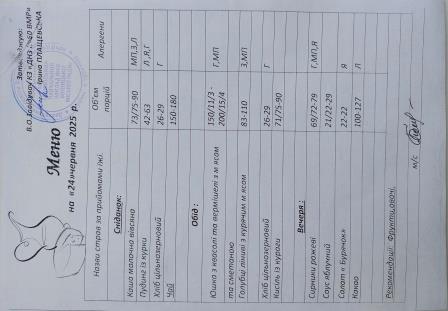 Затверджую:
В.О.Завідувач КЗ «ДНЗ №60 ВМР»
Ірина ПЛАЩЕВСЬКА
Меню
на «24»червня 2025 р.
Назви страв за прийомами їжі. Об'єм порцій Алергени
Сніданок:
Каша молочна вівсяна 73/75-90 МП,З,Л
Пудинг із курки 42-63 Л,Я,Г
Хліб цільнозерновий 26-29 Г
Чай 150-180
Обід:
Юшка з квасолі та вермішелі з м ясом 150/11/3 - Г,МП
та сметаною 200/15/4
Голубці ліниві з курячим м ясом 83-110 З,МП
Хліб цільнозерновий 26-29 Г
Кисіль із кураги 71/75-90
Вечеря:
Сирники рожеві 69/72-79 Г,МП,Я
Соус яблучний 21/22-29
Салат « Бурячок» 22-22 Я
Какао 100-127 Л
Рекомендації: Фрукти,овочі.
м/с